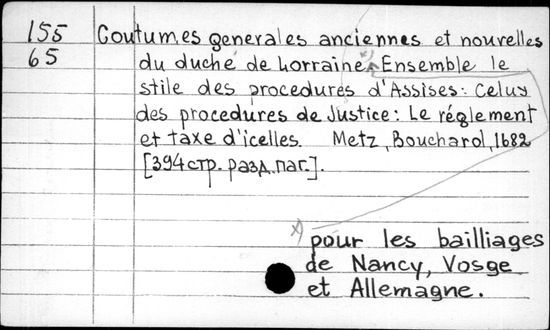 155 Coutumes generales anciennes et nouvelles
65 du duché de Lorraine. x) Ensemble le
stile des procedures d'Assises: Celuy
des procedures de Justice: Le réglement
et taxe d'icelles. Metz, Bouchard, 1682
[394 стр. разд. паг.].
x) pour les bailliages
de Nancy, Vosge
et Allemagne.